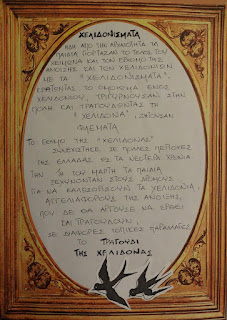 ΧΕΛΙΔΟΝΙΣΜΑΤΑ
ΗΔΗ ΑΠΟ ΤΗΝ ΑΡΧΑΙΟΤΗΤΑ ΤΑ
ΠΑΙΔΙΑ ΓΙΟΡΤΑΖΑΝ ΤΟ ΤΕΛΟΣ ΤΟΥ
ΧΕΙΜΩΝΑ ΚΑΙ ΤΟΝ ΕΡΧΟΜΟ ΤΗΣ
ΑΝΟΙΞΗΣ ΚΑΙ ΤΩΝ ΧΕΛΙΔΟΝΙΩΝ
ΜΕ ΤΑ "ΧΕΛΙΔΟΝΙΣΜΑΤΑ".
ΚΡΑΤΩΝΤΑΣ ΤΟ ΟΜΟΙΩΜΑ ΕΝΟΣ
ΧΕΛΙΔΟΝΙΟΥ, ΤΡΙΓΥΡΝΟΥΣΑΝ ΣΤΗΝ
ΠΟΛΗ ΚΑΙ ΤΡΑΓΟΥΔΩΝΤΑΣ ΤΗ
"ΧΕΛΙΔΟΝΑ", ΖΗΤΟΥΣΑΝ
ΦΙΛΕΜΑΤΑ
ΤΟ ΕΘΙΜΟ ΤΗΣ "ΧΕΛΙΔΟΝΑΣ"
ΣΥΝΕΧΙΣΤΗΚΕ ΣΕ ΠΟΛΛΕΣ ΠΕΡΙΟΧΕΣ
ΤΗΣ ΕΛΛΑΔΑΣ ΩΣ ΤΑ ΝΕΟΤΕΡΑ ΧΡΟΝΙΑ
ΤΗΝ 1η ΤΟΥ ΜΑΡΤΗ ΤΑ ΠΑΙΔΙΑ
ΞΕΧΥΝΟΝΤΑΝ ΣΤΟΥΣ ΔΡΟΜΟΥΣ
ΓΙΑ ΝΑ ΚΑΛΩΣΟΡΙΣΟΥΝ ΤΑ ΧΕΛΙΔΟΝΙΑ
ΑΓΓΕΛΙΑΦΟΡΟΥΣ ΤΗΣ ΑΝΟΙΞΗΣ,
ΠΟΥ ΔΕ ΘΑ ΑΡΓΟΥΣΕ ΝΑ ΕΡΘΕΙ
ΚΑΙ ΤΡΑΓΟΥΔΟΥΝ,
ΣΕ ΔΙΑΦΟΡΕΣ ΤΟΠΙΚΕΣ ΠΑΡΑΛΛΑΓΕΣ
ΤΟ ΤΡΑΓΟΥΔΙ
ΤΗΣ ΧΕΛΙΔΟΝΑΣ